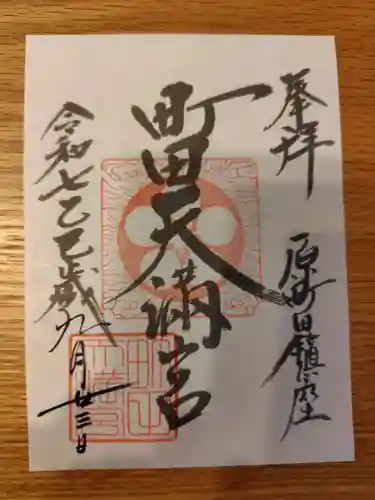 奉拝
原町田鎮座
町田天満宮
令和七乙巳歳九月廿三日